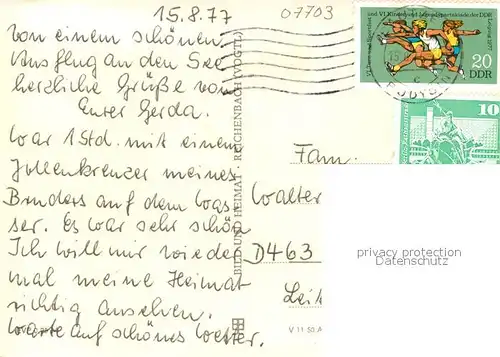 15.8.77
07703
Von einem schönen
Ausflug an den See
herzliche Grüße von
Eurer Gerda.
War 1 Std. mit einem
Jollenkreuzer meines
Bruders auf dem Was
ser. Es war sehr schön
Ich will mir wieder
mal meine Heimat
richtig ansehen.
Warte auf schönes Wetter.
BILD UND HEIMAT · REICHENBACH (VOGTL)
V 11 50 A
VI. Turn- und Sportfest
und VI. Kinder- und Jugendspartakiade der DDR
Leipzig 1977
20
DDR
10
Fam.
Walter
D463
Leit
privacy protection
Datenschutz